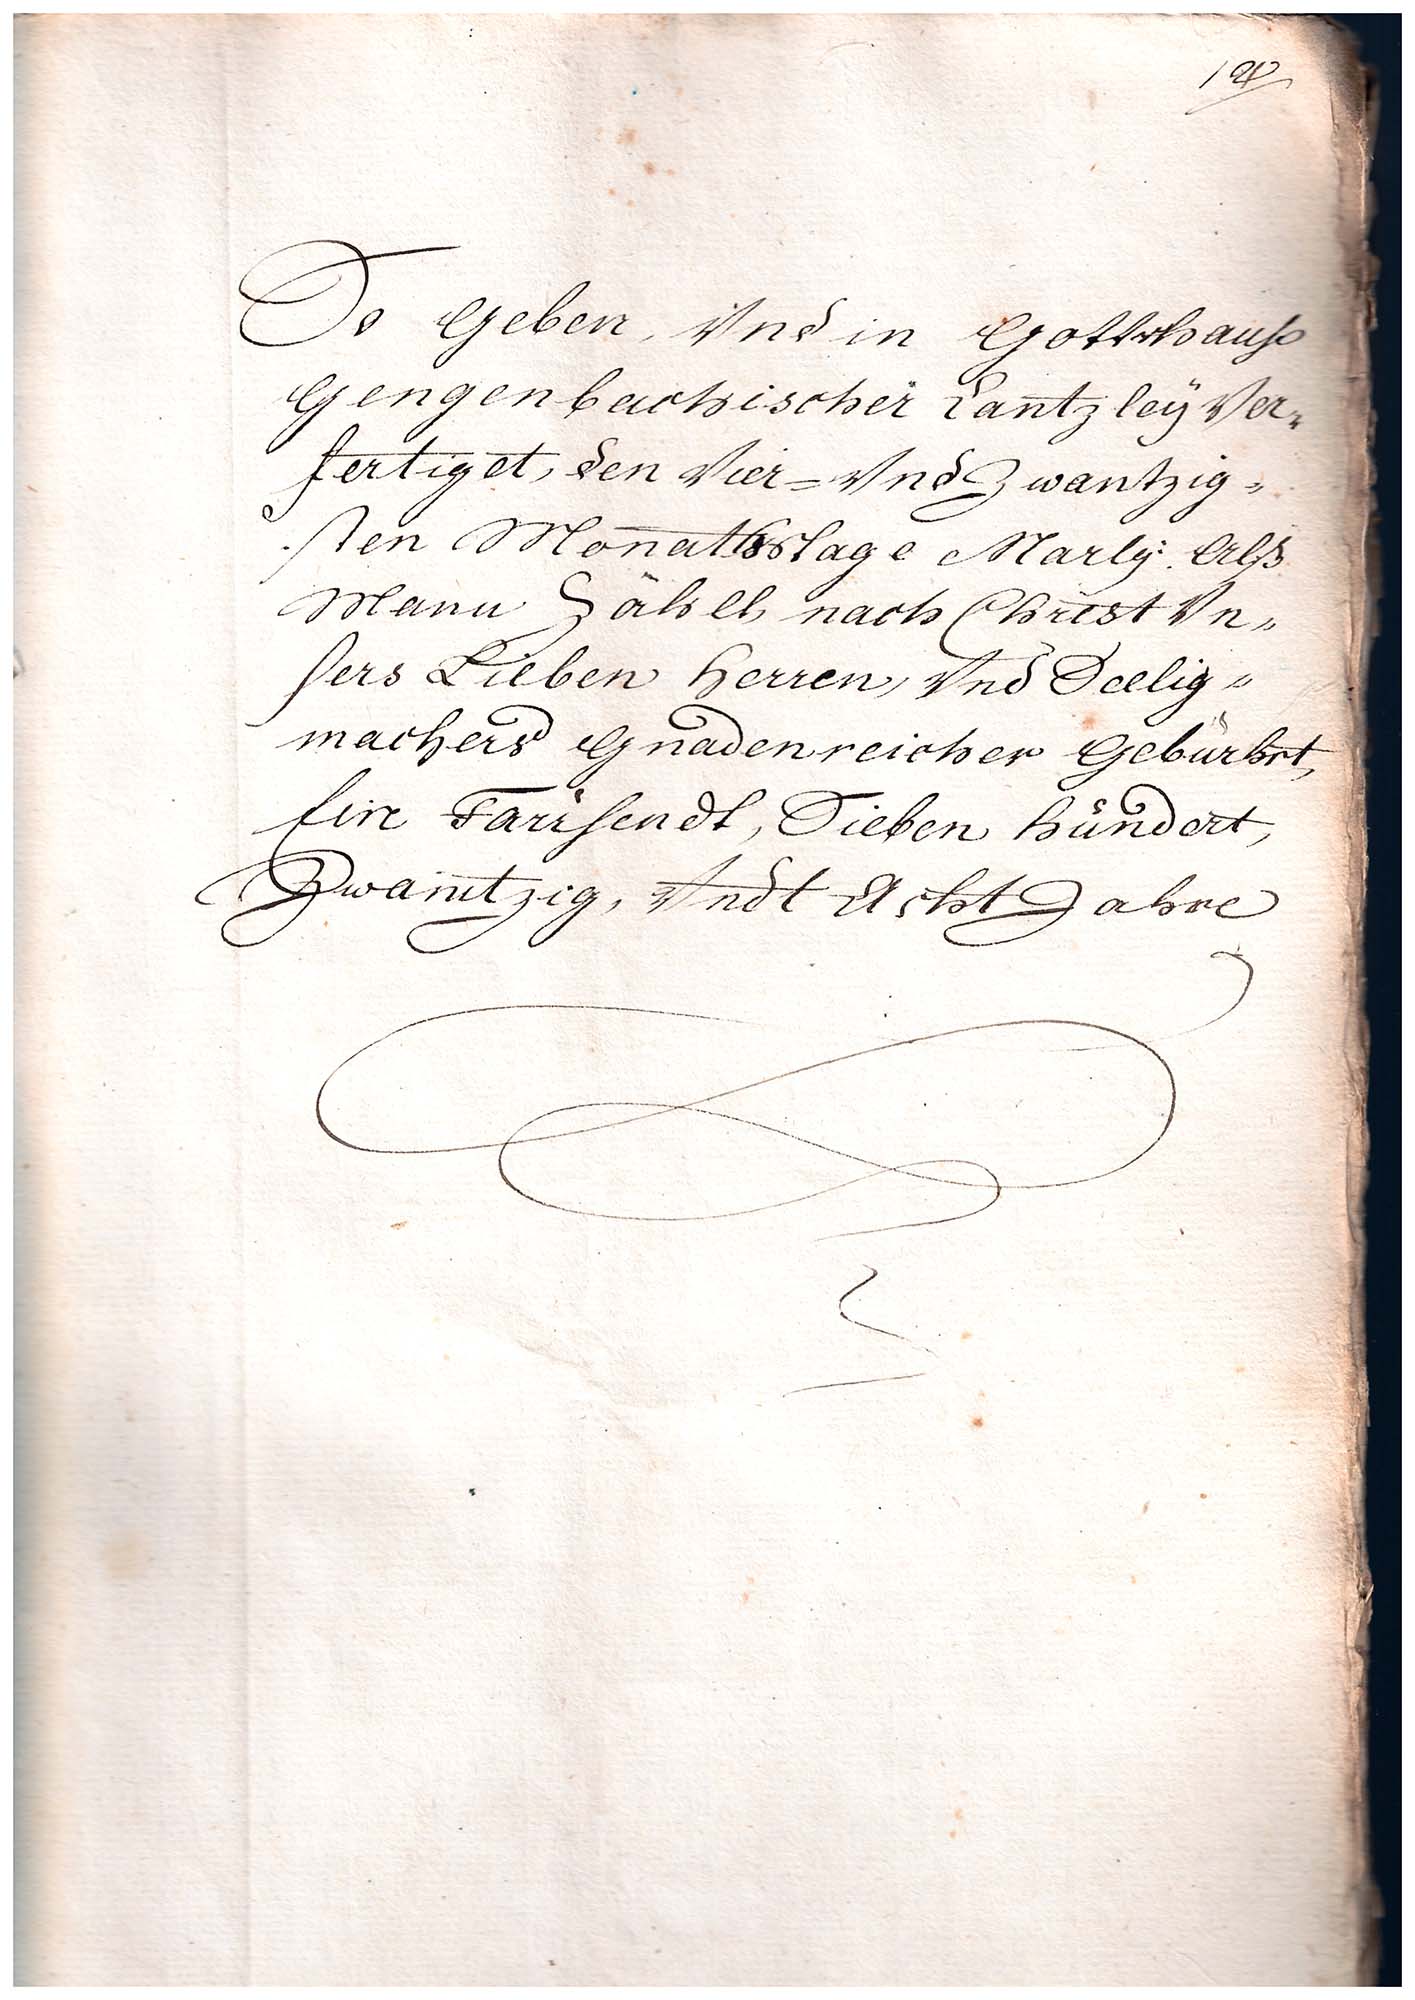 So Geben, Vnd in Gottshauß
Gengenbachischer Cantzleÿ Ver„
fertiget, den Vier= Vnd Zwantzig„
sten Monathstage Martÿ. Alß
Mann Zählet, nach Christ Vn„
sers Lieben Herren, Vnd Seelig„
machers Gnadenreicher Gebührt,
Ein Taußendt, Sieben Hündert,
Zwantzig, Vndt Acht Jahre